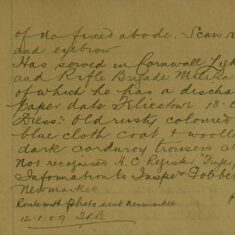 of no fixed abode. Scar r
and eyebrow
Has served in Cornwall Lig
and Rifle Brigade Militia
of which he has a discha
paper date Felixstowe 18-
Dress:- Old rusty coloured
blue cloth coat & woolle
dark corduroy trousers a
Not recognised H.C. Register
Information to Insper Gobbe
Newmarket
Route with photo sent Newmarket
12-1-09